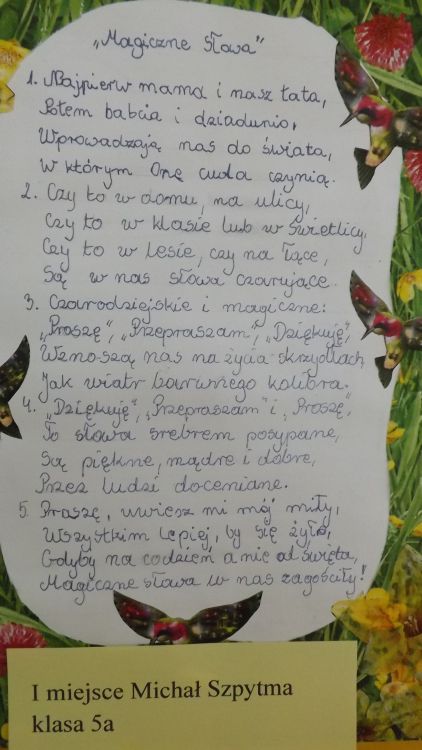 „Magiczne słowa"
1. Najpierw mama i nasz tata,
Potem babcia i dziadunio,
Wprowadzają nas do świata,
W którym One cuda czynią.
2. Czy to w domu, na ulicy,
Czy to w klasie lub w Świetlicy.
Czy to w lesie, czy na łące,
Są w nas słowa czarujące.
3. Czarodziejskie i magiczne:
„Proszę", „Przepraszam", „Dziękuję",
Wzno-szą nas na życia skrzydłach,
Jak wiatr barwnego kolibra.
4. „Dziękuję", „Przepraszam" i „Proszę",
To słowa srebrem posypane,
Są piękne, mądre i dobre,
Przez ludzi doceniane.
5. Proszę, uwierz mi mój miły,
Wszystkim lepiej, by się żyło,
Gdyby na codzień a nie od święta,
Magiczne słowa w nas zagościły!
I miejsce Michał Szpytma
klasa 5a